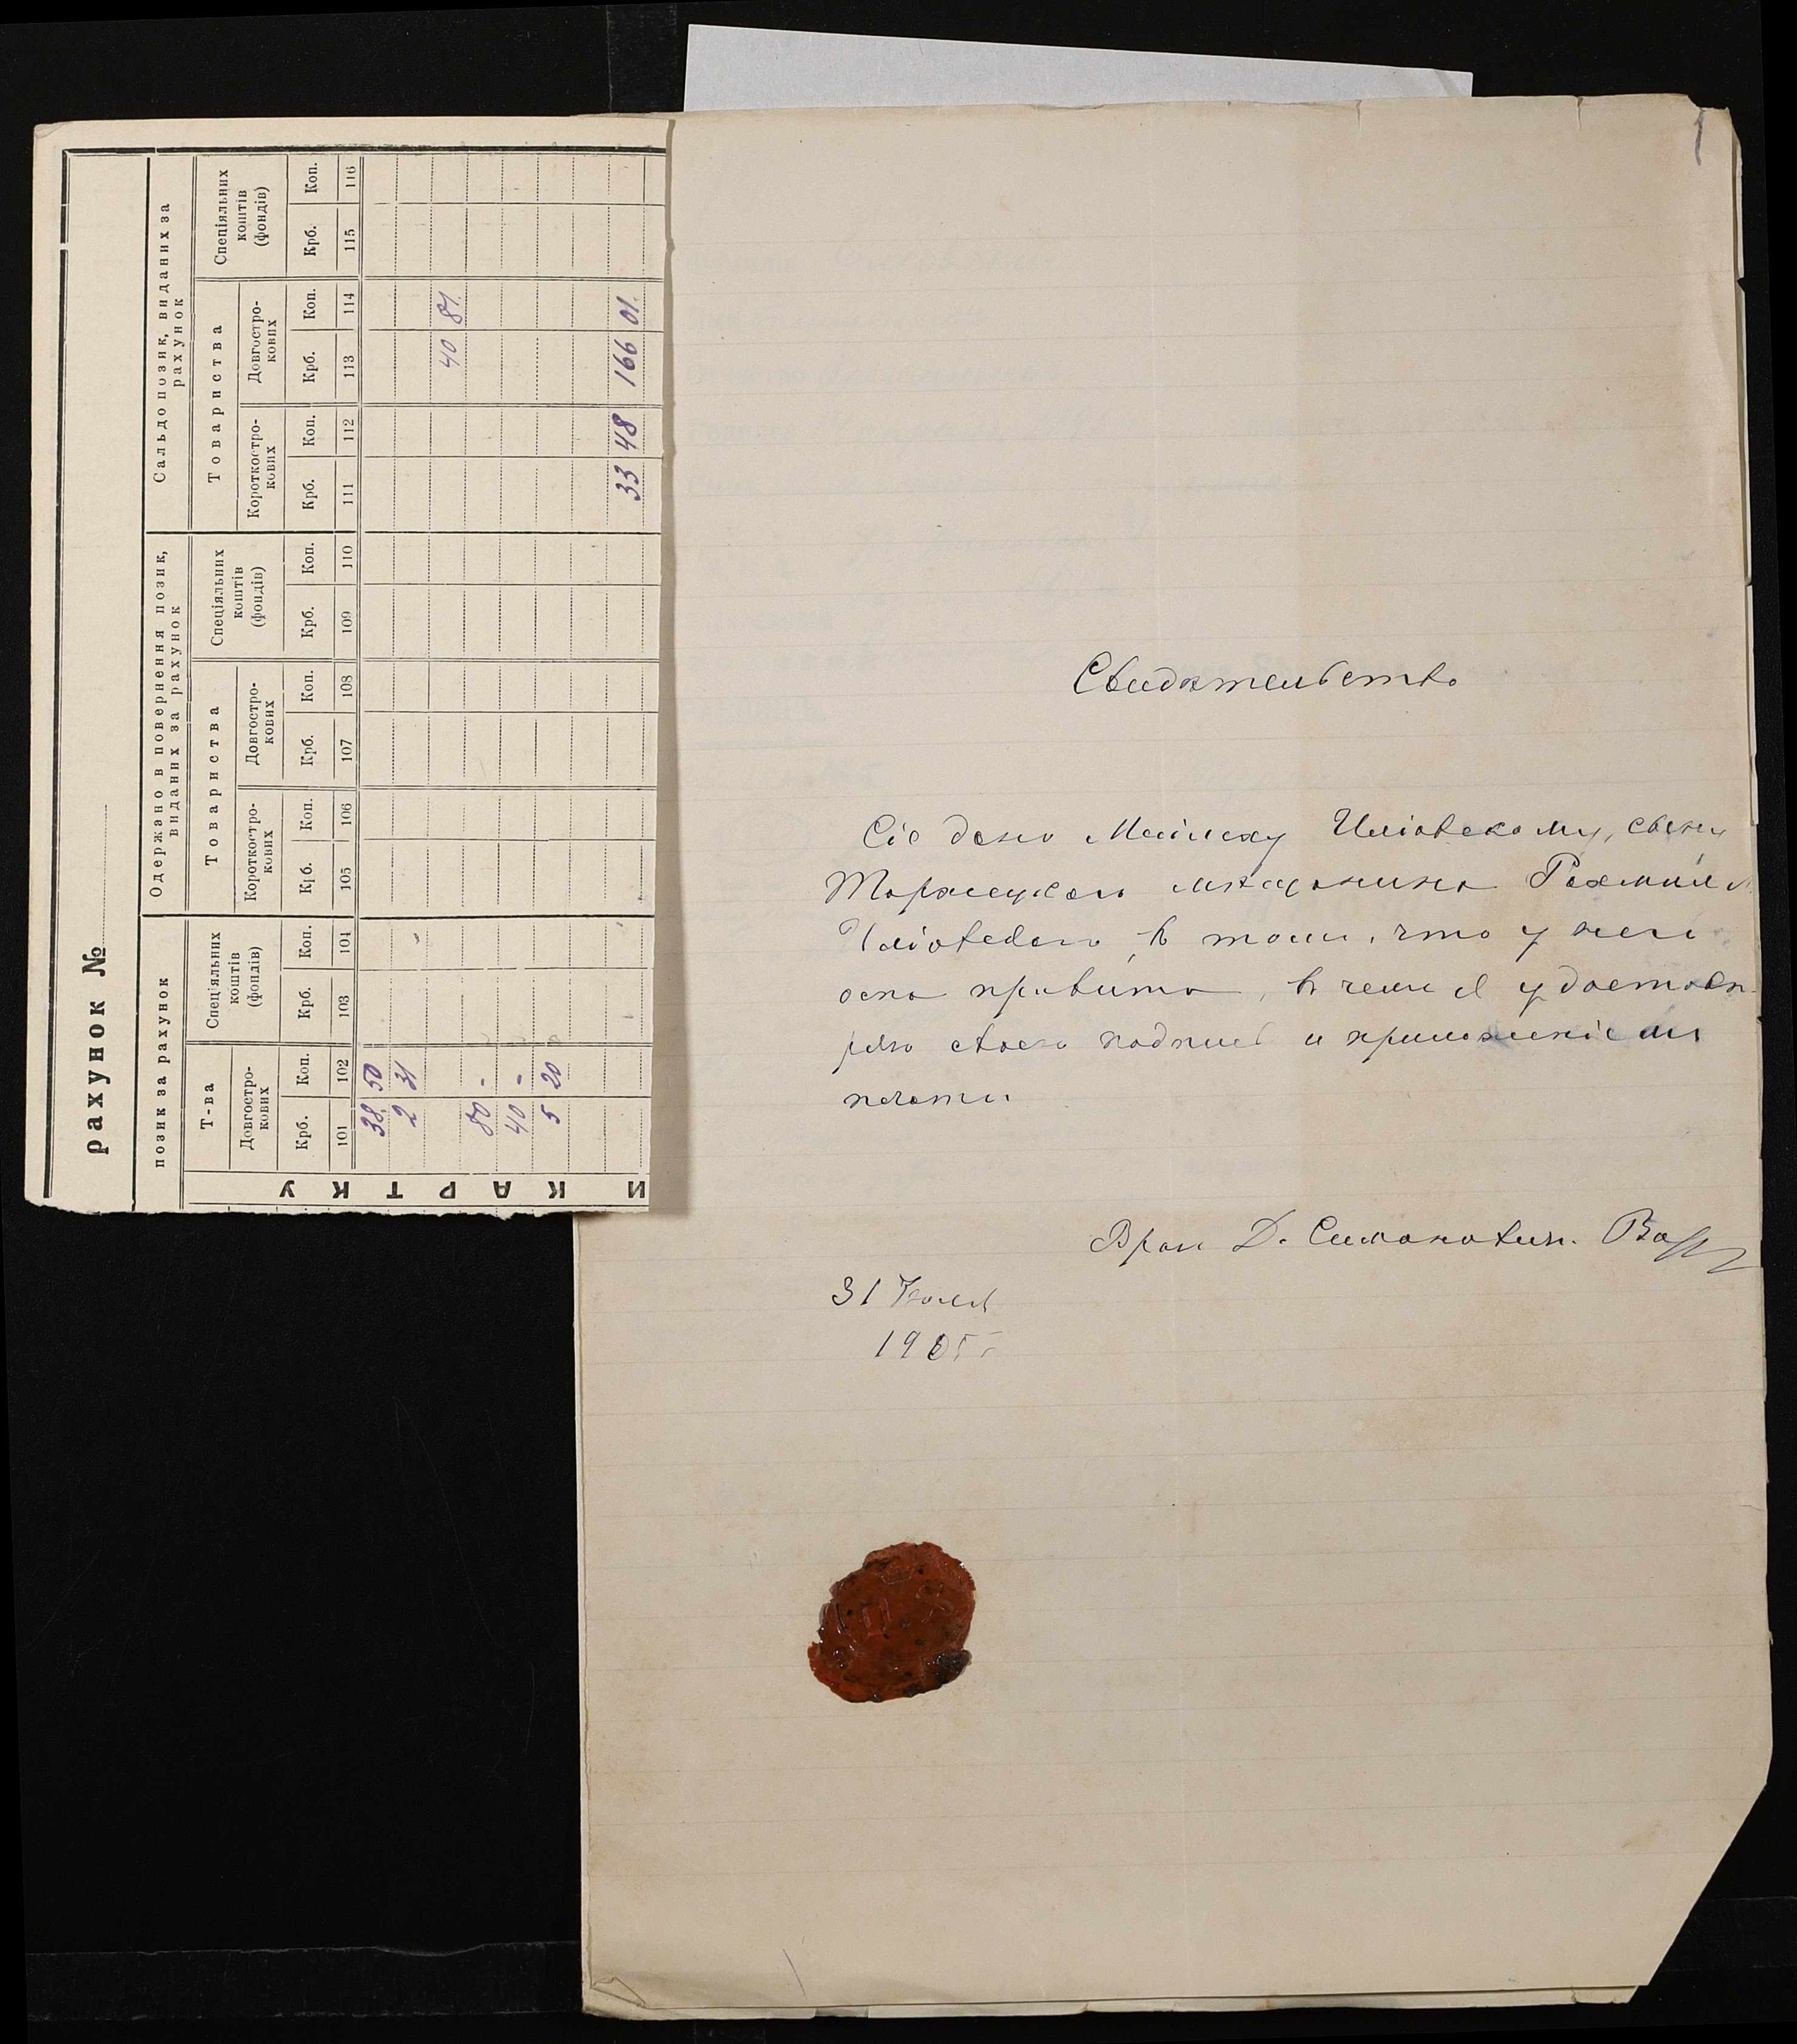 рахунок №
позик за рахунок
Одержано в повернення позик,
виданих за рахунок
Сальдо позик, виданих за
рахунок
Т-ва
Спеціяльних
коштів
(фондів)
Товариства
Спеціяльних
коштів
(фондів)
Товариства
Спеціяльних
коштів
(фондів)
Довгостро-
кових
Короткостро-
кових
Довгостро-
кових
Короткостро-
кових
Довгостро-
кових
Крб. Коп. Крб. Коп. Крб. Коп. Крб. Коп. Крб. Коп. Крб. Коп. Крб. Коп. Крб. Коп.
101 102 103 104 105 106 107 108 109 110 111 112 113 114 115 116
38 50
2 31
40 81
80 -
40 -
5 20
33 48 166 01
КАРТКУ
И
1
Свидѣтельство
Сіе дано Иліовскому, сыну
мѣщанина
Иліовскаго, въ томъ, что у него
оспа привита, въ чемъ я удостовѣ-
ряю своею подписью и приложеніемъ
печати.
Врач Д. Симонович.
31 Іюля
1905 г